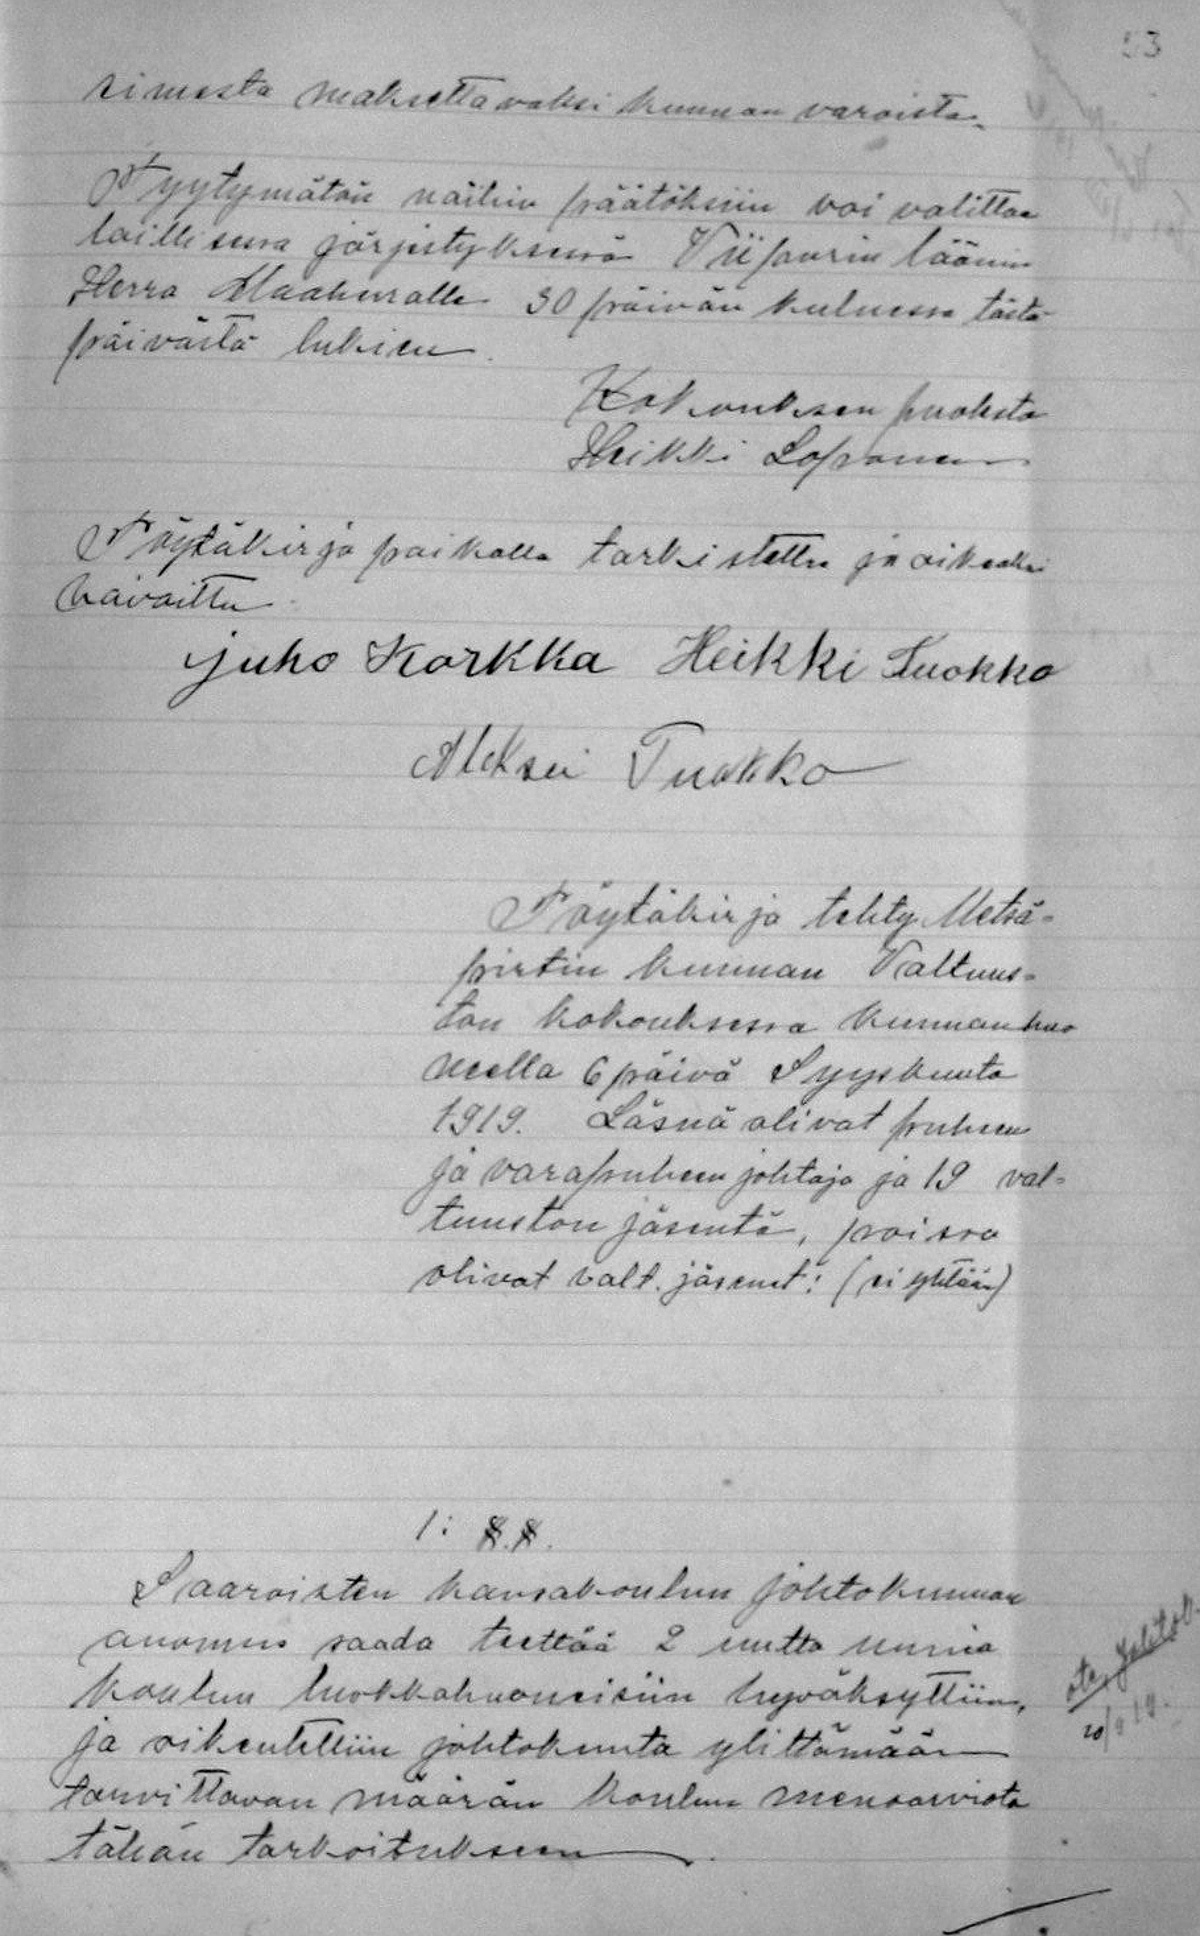 53
simesta maksettavaksi kunnan varoista.
Tyytymätön näihin päätöksiin voi valittaa
laillisessa järjestyksessä Viipurin läänin
Herra Maaherralle 30 päivän kuluessa tästä
päivästä lukien.
Kokouksen puolesta
Heikki Loponen
Pöytäkirja paikalla tarkistettu ja oikeaksi
havaittu.
Juho Korkka Heikki Suokko
Aleksei Tuokko
Pöytäkirja tehty Metsä-
pirtin kunnan Valtuus-
ton kokouksessa kunnanhuo
neella 6 päivä Syyskuuta
1919. Läsnä olivat puheen
ja varapuheenjohtaja ja 19 val-
tuuston jäsentä, poissa
olivat valt. jäsenet: (ei yhtään)
1: §.§.
Saaroisten kansakoulun johtokunnan
anomus saada teettää 2 uutta uunia
koulun luokkahuoneisiin hyväksyttiin,
ja oikeutettiin johtokunta ylittämään
tarvittavan määrän koulun menoarviota
tähän tarkoitukseen.
ote Johtok.
20/9 19.